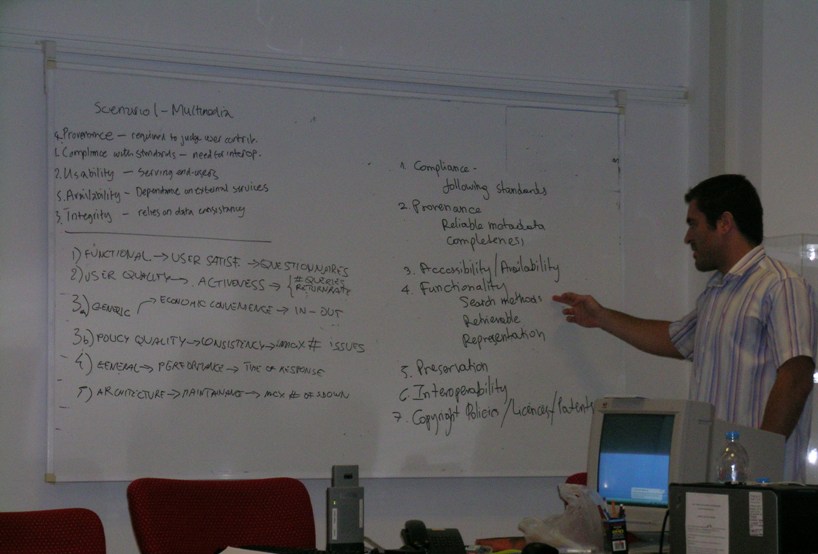 Scenario 1 - Multimedia
4. Provenance – required to judge user contrib.
1. Compliance with standards – need for interop.
2. Usability – Serving end-users
5. Availability – Dependance on external services
3. Integrity – relies on data consistancy
1) FUNCTIONAL → USER SATISF. → QUESTIONNAIRES
2) USER QUALITY → ACTIVENESS → { # QUERIES
RETURN RATE
3a) GENERIC → ECONOMIC CONVENIENCE → IN - OUT
3b) POLICY QUALITY → CONSISTENCY → MAX # ISSUES
4) GENERAL → PERFORMANCE → TIME OF RESPONSE
5) ARCHITECTURE → MAINTENANCE → MAX # OF DOWN
1. Compliance -
following standards
2. Provenance
Reliable metadata
Completeness
3. Accessibility/Availability
4. Functionality
Search methods
Retrievable
Representation
5. Preservation
6. Interoperability
7. Copyright Policies/Licences/Patents